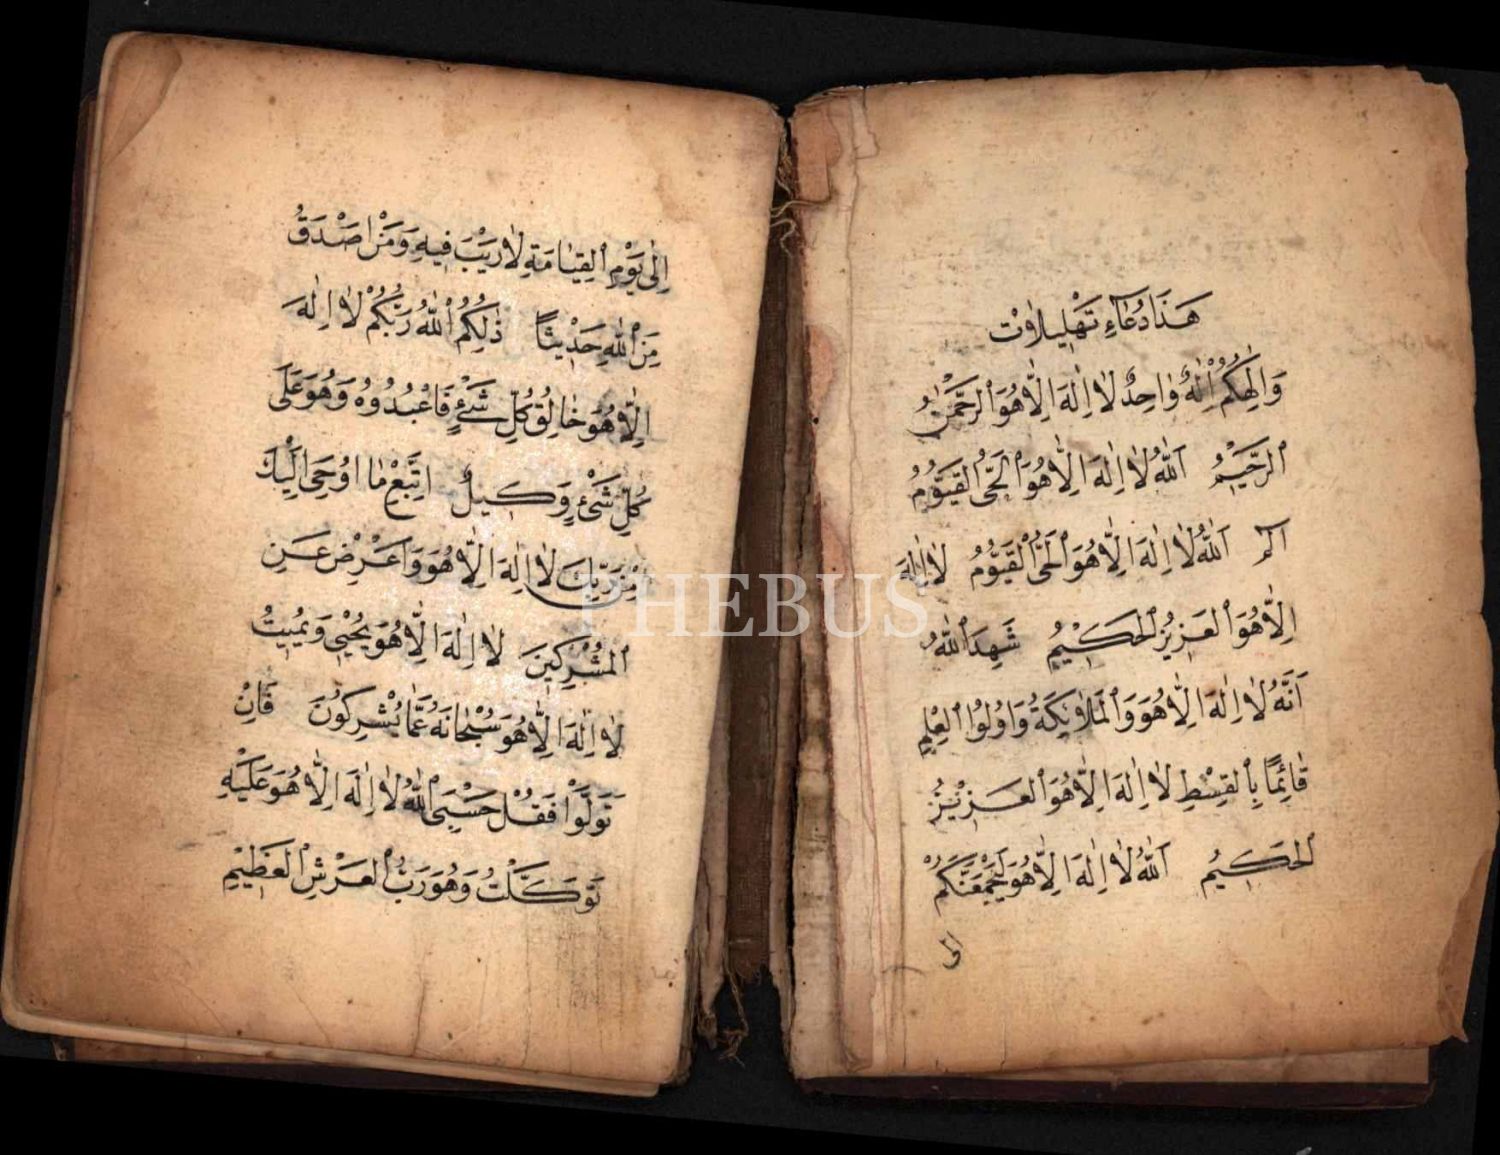 هَذَا دُعَآءِ تَهْلِيلَاتْ
وَاِلٰهُكُمْ اِلٰهٌ وَاحِدٌ لَا اِلٰهَ اِلَّا هُوَ الرَّحْمٰنُ
الرَّحِيْمُ اَللّٰهُ لَا اِلٰهَ اِلَّا هُوَ الْحَىُّ الْقَيُّوْمُ
الٓمٓ اَللّٰهُ لَا اِلٰهَ اِلَّا هُوَ الْحَىُّ الْقَيُّوْمُ لَا اِلٰهَ
اِلَّا هُوَ الْعَزِيْزُ الْحَكِيْمُ شَهِدَ اللّٰهُ
اَنَّهُ لَا اِلٰهَ اِلَّا هُوَ وَالْمَلَائِكَةُ وَاُولُوا الْعِلْمِ
قَائِمًا بِالْقِسْطِ لَا اِلٰهَ اِلَّا هُوَ الْعَزِيْزُ
الْحَكِيْمُ اَللّٰهُ لَا اِلٰهَ اِلَّا هُوَ لَيَجْمَعَنَّكُمْ
اِلٰى يَوْمِ الْقِيَامَةِ لَا رَيْبَ فِيهِ وَمَنْ اَصْدَقُ
مِنَ اللّٰهِ حَدِيْثًا ذٰلِكُمُ اللّٰهُ رَبُّكُمْ لَا اِلٰهَ
اِلَّا هُوَ خَالِقُ كُلِّ شَىْءٍ فَاعْبُدُوهُ وَهُوَ عَلَى
كُلِّ شَىْءٍ وَكِيلٌ اِتَّبِعْ مَا اُوحِىَ اِلَيْكَ
مِنْ رَبِّكَ لَا اِلٰهَ اِلَّا هُوَ وَاَعْرِضْ عَنِ
الْمُشْرِكِينَ لَا اِلٰهَ اِلَّا هُوَ يُحْيِى وَيُمِيتُ
لَا اِلٰهَ اِلَّا هُوَ سُبْحَانَهُ عَمَّا يُشْرِكُونَ فَاِنْ
تَوَلَّوْا فَقُلْ حَسْبِىَ اللّٰهُ لَا اِلٰهَ اِلَّا هُوَ عَلَيْهِ
تَوَكَّلْتُ وَهُوَ رَبُّ الْعَرْشِ الْعَظِيْمِ
PHEBUS